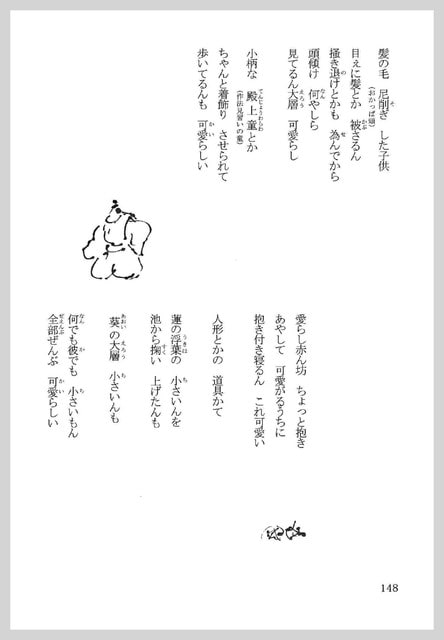 髪の毛 尼削ぎ した子供
(おかっぱ頭)
目ぇに髪とか 被さるん
掻き退けとかも 為んでから
頭傾け 何やしら
見てるん大層 可愛らし
小柄な 殿上童とか
(作法見習いの童)
ちゃんと着飾り させられて
歩いてるんも 可愛らしい
愛らし赤ん坊 ちょっと抱き
あやして 可愛がるうちに
抱き付き寝るん これ可愛い
人形とかの 道具かて
蓮の浮葉の 小さいんを
池から掬い 上げたんも
葵の大層 小さいんも
何でも彼でも 小さいもん
全部ぜんぶ 可愛らしい
148